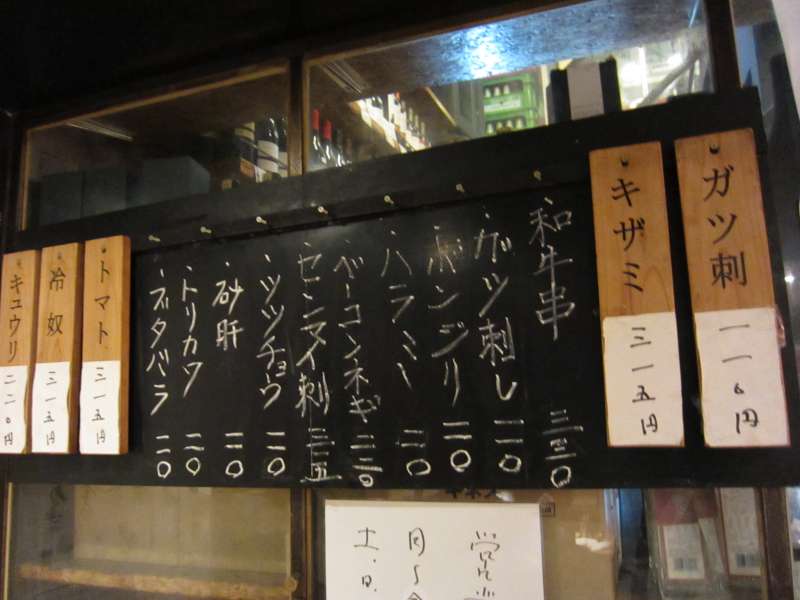 ガツ刺 一一〇円
キザミ 三一五円
・和牛串 三三〇
・ガツ刺し 一一〇
・ボンジリ 一一〇
・ハラミ 一一〇
・ベーコンネギ 二二〇
・センマイ刺 三一五
・ツツチョウ 一一〇
・砂肝 一一〇
・トリカワ 一一〇
・ブタバラ 一一〇
トマト 三一五円
冷奴 三一五円
キュウリ 二二〇円
営業
月〜金
土.日.